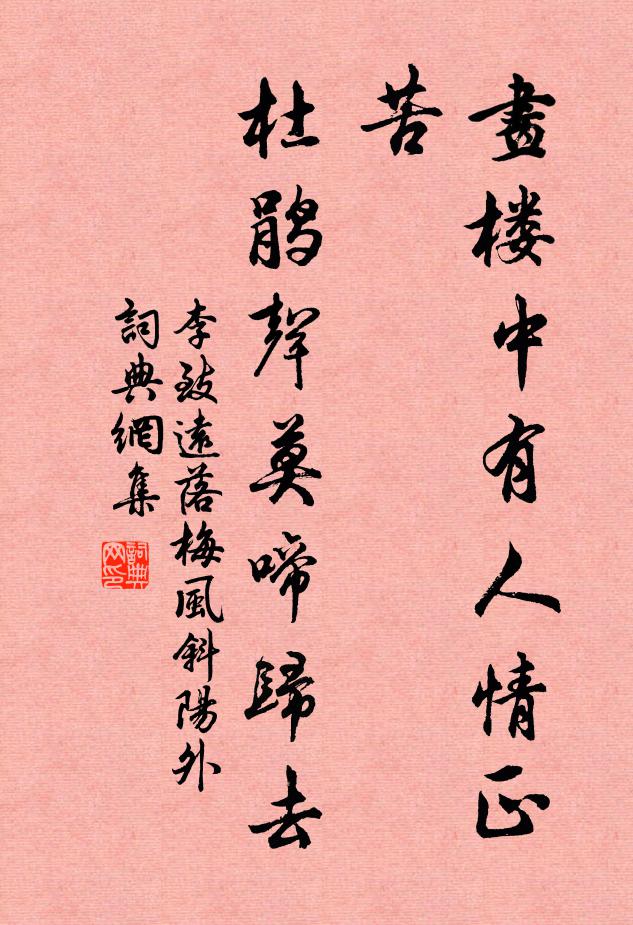 畫楼中有人情正
苦
杜鹃聲莫啼歸去
李致遠落梅風斜陽外
詞典網集
詞典
网印